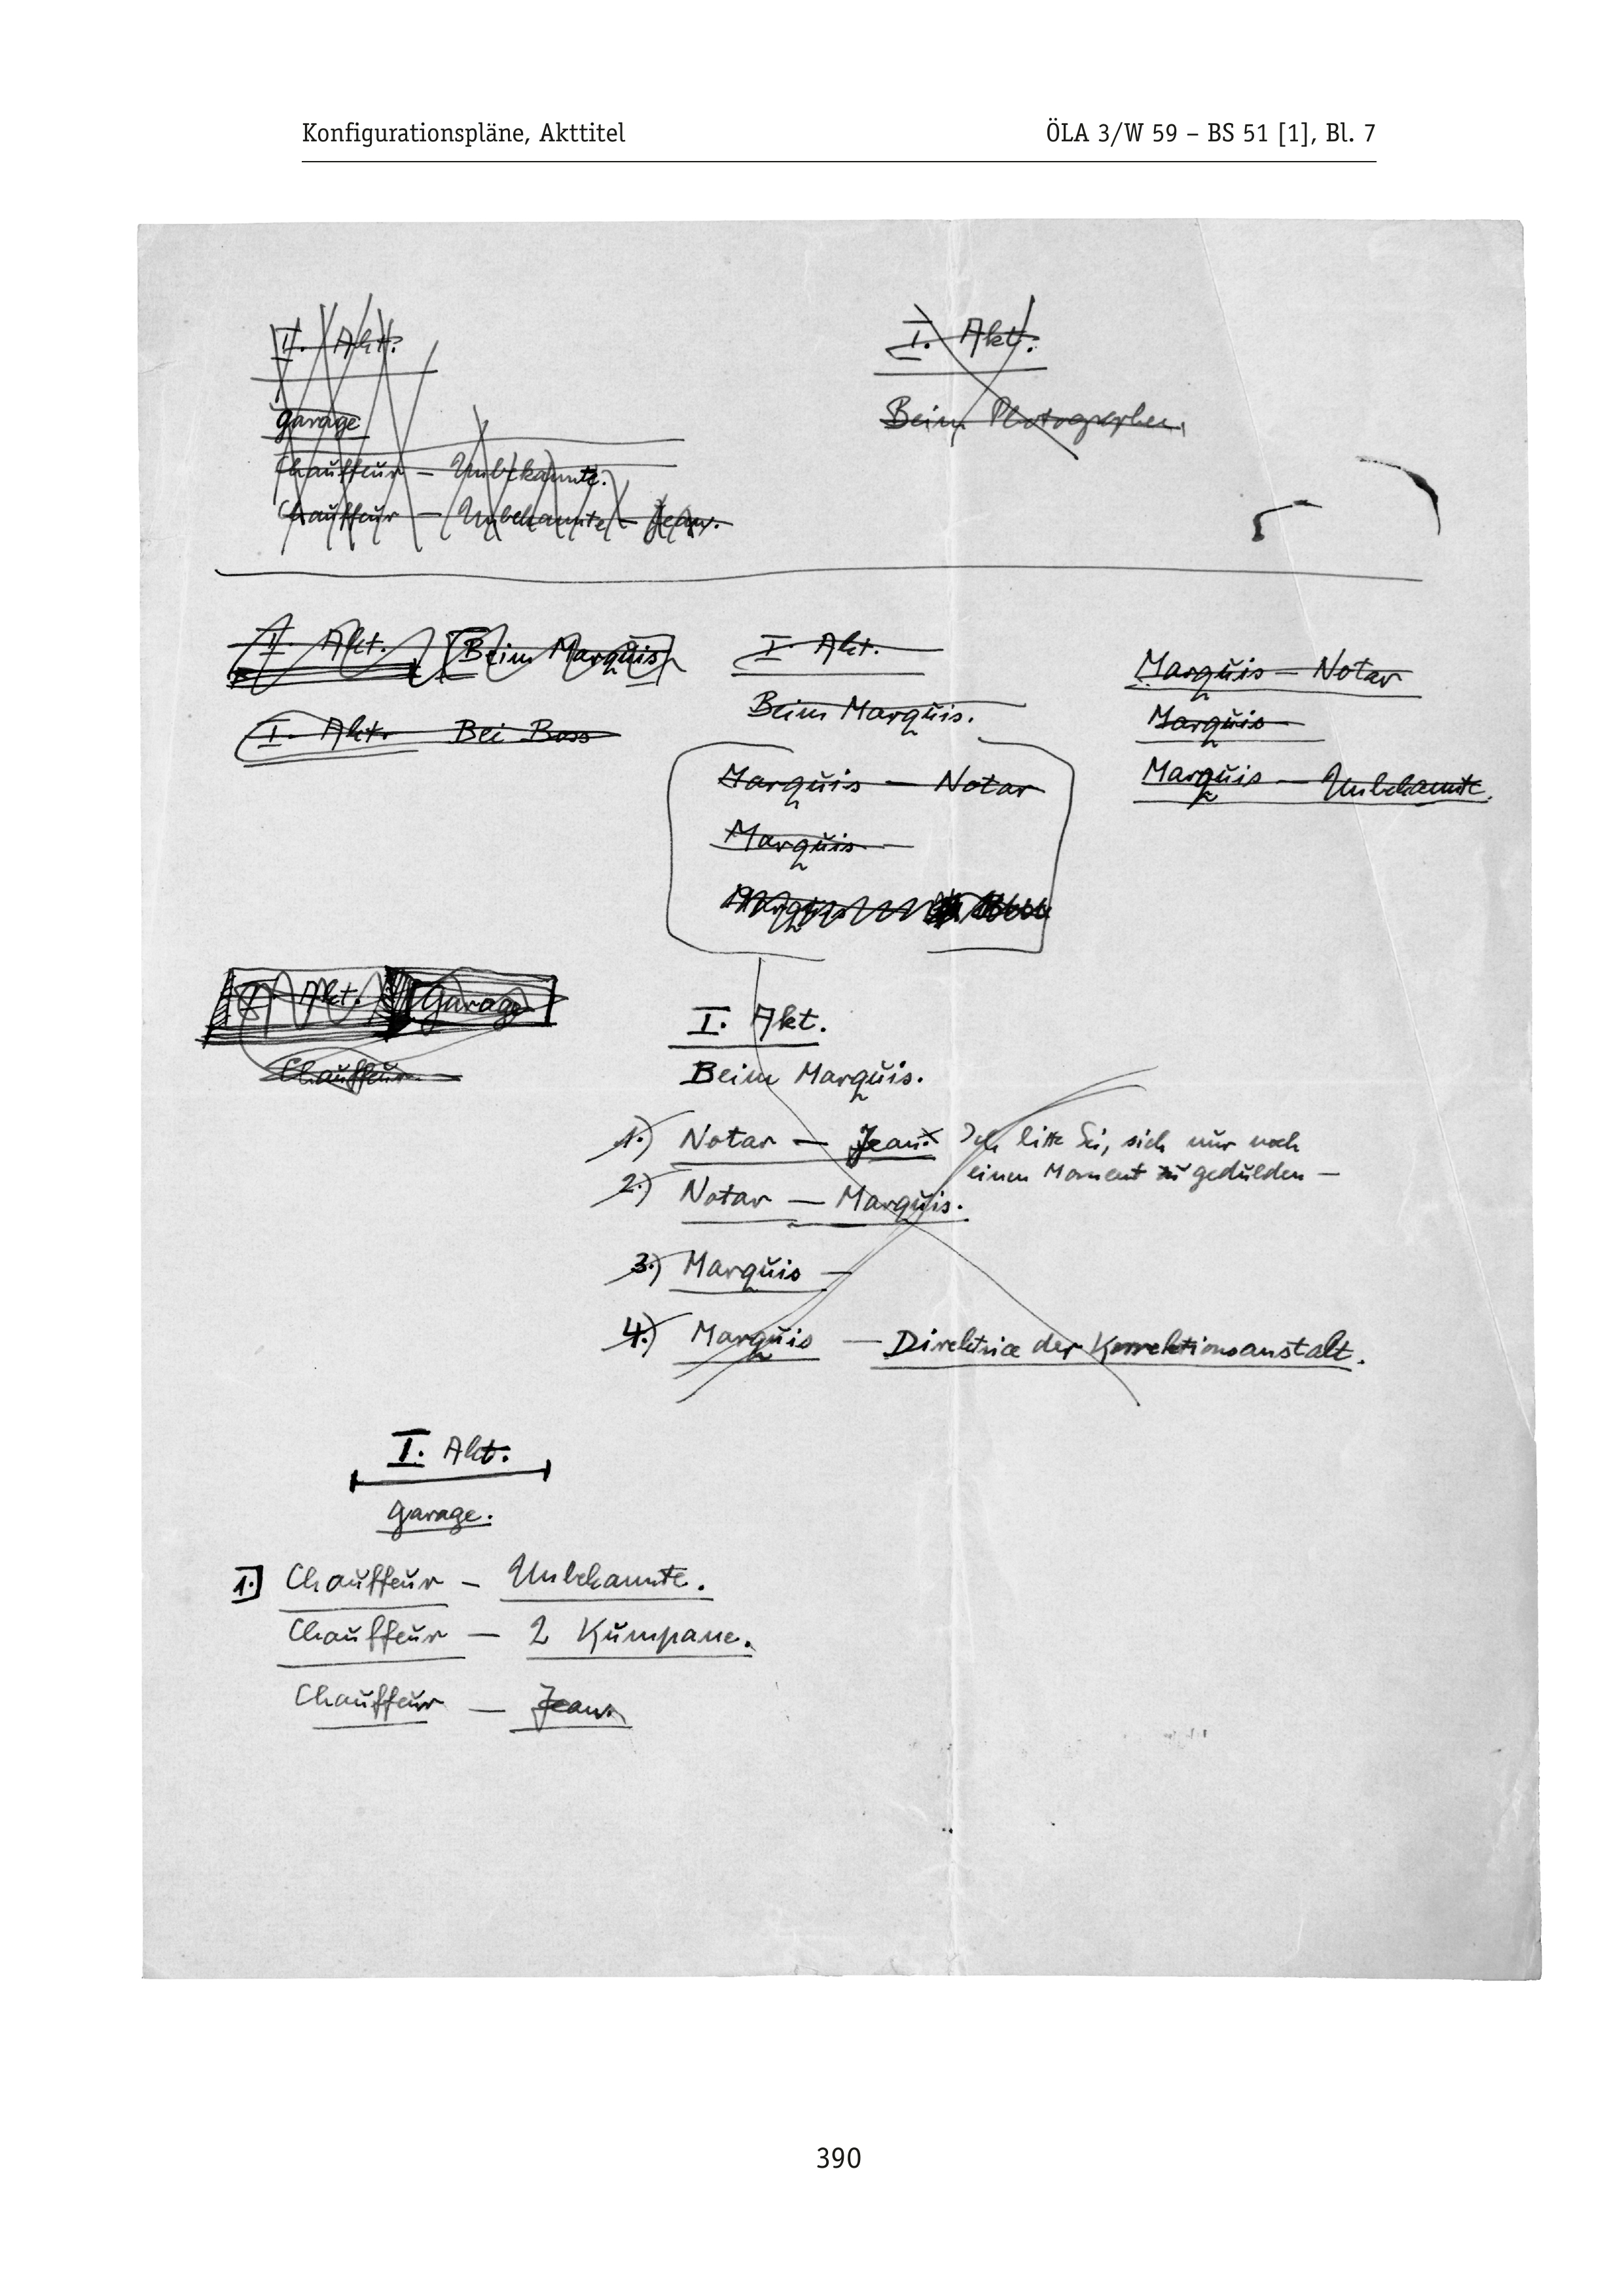 Konfigurationspläne, Akttitel
ÖLA 3/W 59 – BS 51 [1], Bl. 7
II. Akt.
Garage
Chauffeur – Unbekannte.
Chauffeur – Unbekannte – Jean.
I. Akt.
Beim Photographen.
II. Akt. Beim Marquis
I. Akt. Bei Boss
I. Akt.
Beim Marquis.
Marquis – Notar
Marquis –
Marquis
Marquis – Notar
Marquis –
Marquis – Unbekannte.
I. Akt. Garage
Chauffeur –
I. Akt.
Beim Marquis.
1.) Notar – Jean: Ich bitte Sie, sich nur noch
einen Moment zu gedulden –
2.) Notar – Marquis.
3.) Marquis –
4.) Marquis – Direktrice der Korrektionsanstalt.
I. Akt.
Garage.
1.) Chauffeur – Unbekannte.
Chauffeur – 2 Kumpane.
Chauffeur – Jean.
390